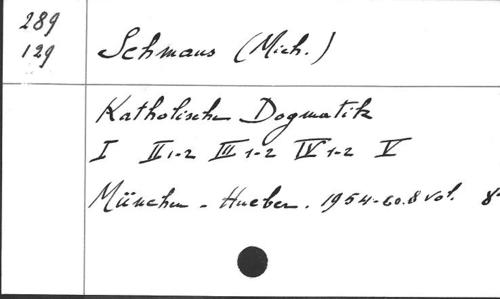 289
129
Schmaus (Mich.)
Katholische Dogmatik
I II 1-2 III 1-2 IV 1-2 V
München - Hueber. 1954-60. 8 vol. 8°